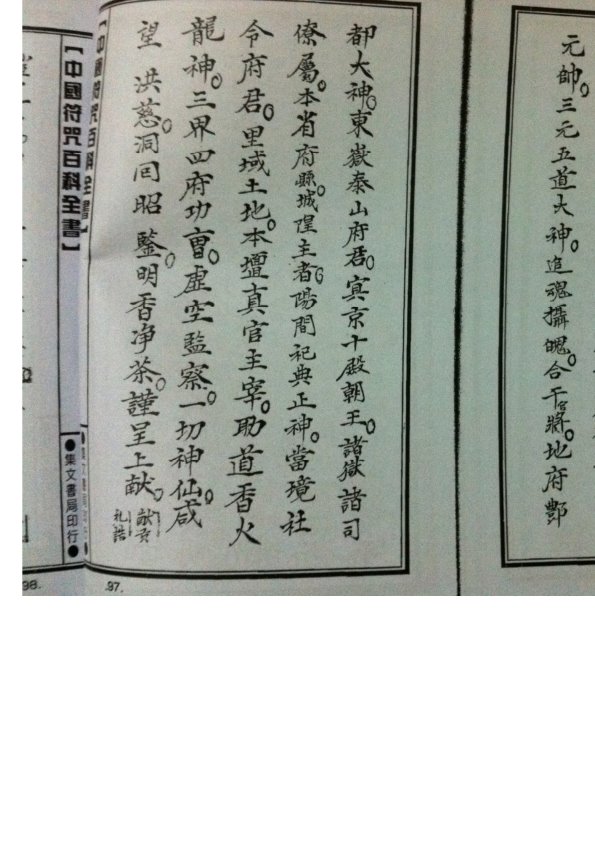 元帥。三元五道大神。追魂攝魄。合干官將。地府酆
都大神。東嶽泰山府君。冥京十殿朝王。諸獄諸司
僚屬。本省府縣城隍主者。陽間祀典正神。當境社
令府君。里域土地。本壇真官主宰。助道香火
龍神。三界四府功曹。虛空監察。一切神仙。咸
望 洪慈。洞囘昭 鑒。明香净茶。謹呈上献。
礼誥
【中國符咒百科全書】
●集文書局印行●
97.
【中國符咒百科全書】
●集文書局印行●
98.